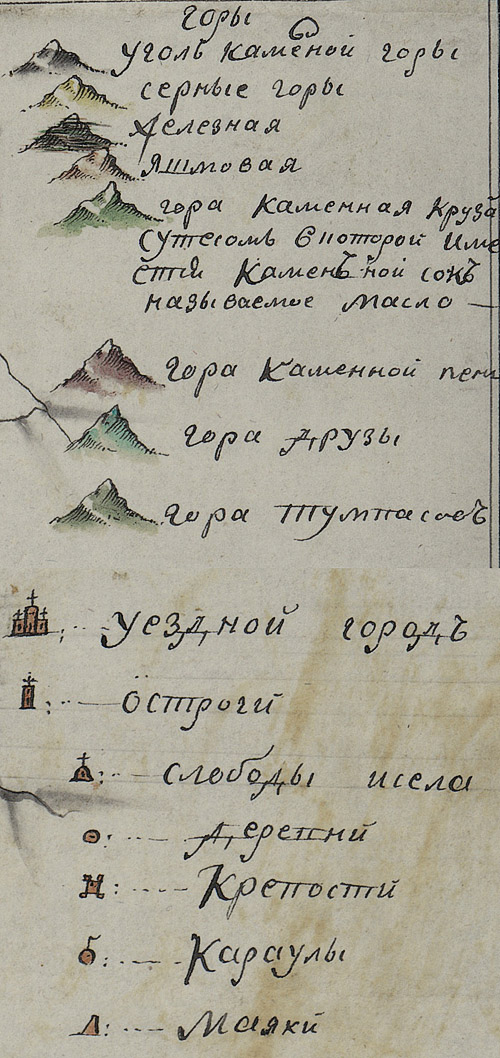 горы
уголь каменой горы
серные горы
железная
яшмовая
гора каменная круза
сутесомъ вкоторой име
етца каменъ ной сокъ
называемое масло
гора каменной
гора друзы
гора тумпасовъ
уездной городъ
остроги
слободы исела
деревни
крепости
караулы
маяки